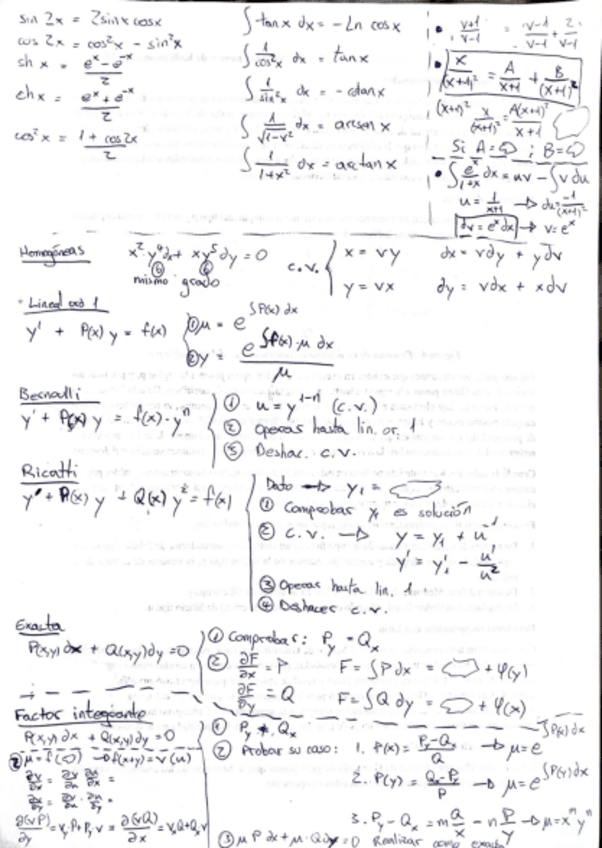 sin 2x = 2sinx cosx
cos 2x = cos²x - sin²x
sh x = (e^x - e^-x)/2
ch x = (e^x + e^-x)/2
cos²x = (1 + cos2x)/2
∫ tanx dx = - Ln cosx
∫ 1/cos²x dx = tanx
∫ 1/sin²x dx = - cotanx
∫ 1/√(1-x²) dx = arcsen x
∫ 1/(1+x²) dx = arctanx
• (v+1)/(v-1) = (v-1)/(v-1) + 2/(v-1)
• x/(x+1)² = A/(x+1) + B/(x+1)²
(x+1)² x/(x+1)² = A(x+1)²/(x+1)
Si A= ; B=
• ∫ e^x/(1+x) dx = uv - ∫v du
u = 1/(x+1) → du = -1/(x+1)²
dv = e^x dx → v = e^x
Homogéneas
x² y⁴dx + xy⁵dy = 0
⑥ ⑥
mismo grado
c.v.
x = vy dx = vdy + ydv
y = vx dy = vdx + xdv
Lineal ord 1
y' + P(x) y = f(x)
① μ = e^∫P(x)dx
② y = e^∫f(x)·μ dx / μ
Bernoulli
y' + P(x) y = f(x)·y^n
① u = y^(1-n) (c.v.)
② operas hasta lin. or. 1
③ Deshac. c.v.
Ricatti
y' + P(x) y + Q(x) y² = f(x)
Dato → y₁ =
① Comprobar y₁ es solución
② c.v. → y = y₁ + u⁻¹
y' = y'₁ - u'/u²
③ Operas hasta lin. 1
④ Deshacer c.v.
Exacta
P(x,y)dx + Q(x,y)dy = 0
① Comprobar: P_y = Q_x
② ∂F/∂x = P F = ∫P dx = + φ(y)
∂F/∂y = Q F = ∫Q dy = + φ(x)
Factor integrante
P(x,y)dx + Q(x,y)dy = 0
① P_y ≠ Q_x
② Probar su caso: 1. P(x) = (P_y - Q_x)/Q → μ = e^∫P(x)dx
2. P(y) = (Q_x - P_y)/P → μ = e^∫P(y)dy
3. P_y - Q_x = m Q/x - n P/y → μ = x^m y^n
③ μ P dx + μ·Q dy = 0 Realizar como exacta